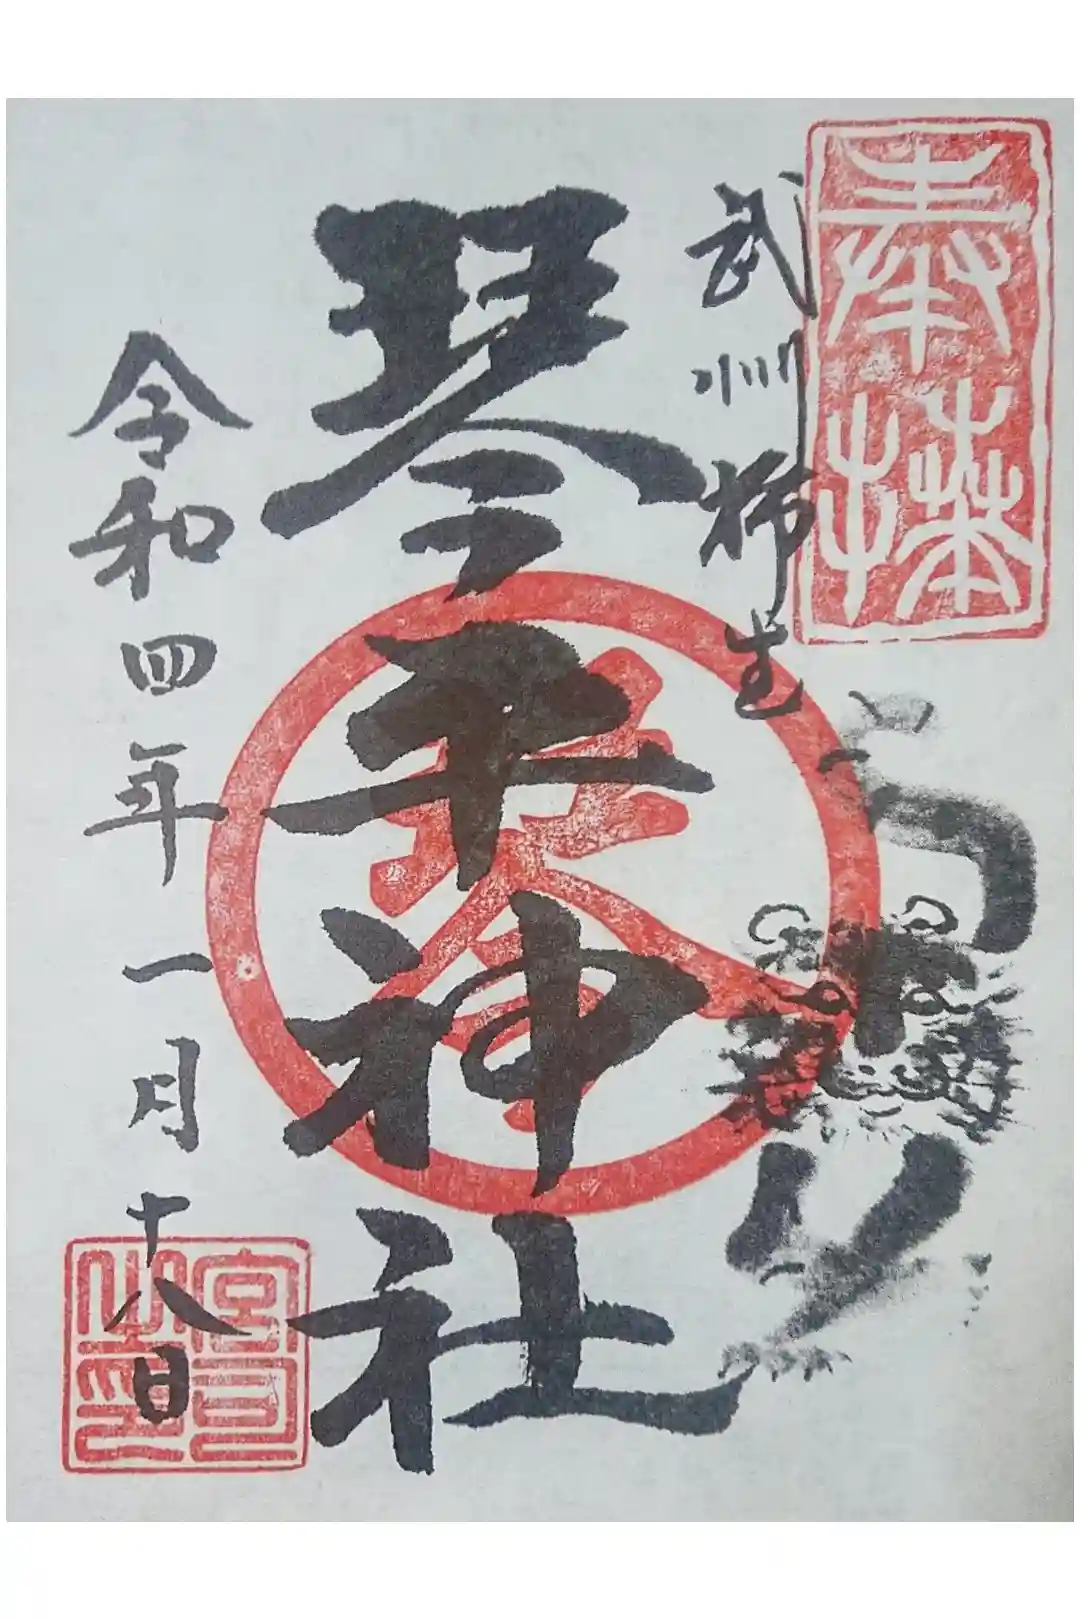 奉拝
武州柿生
琴平神社
令和四年一月十八日
宮司之印